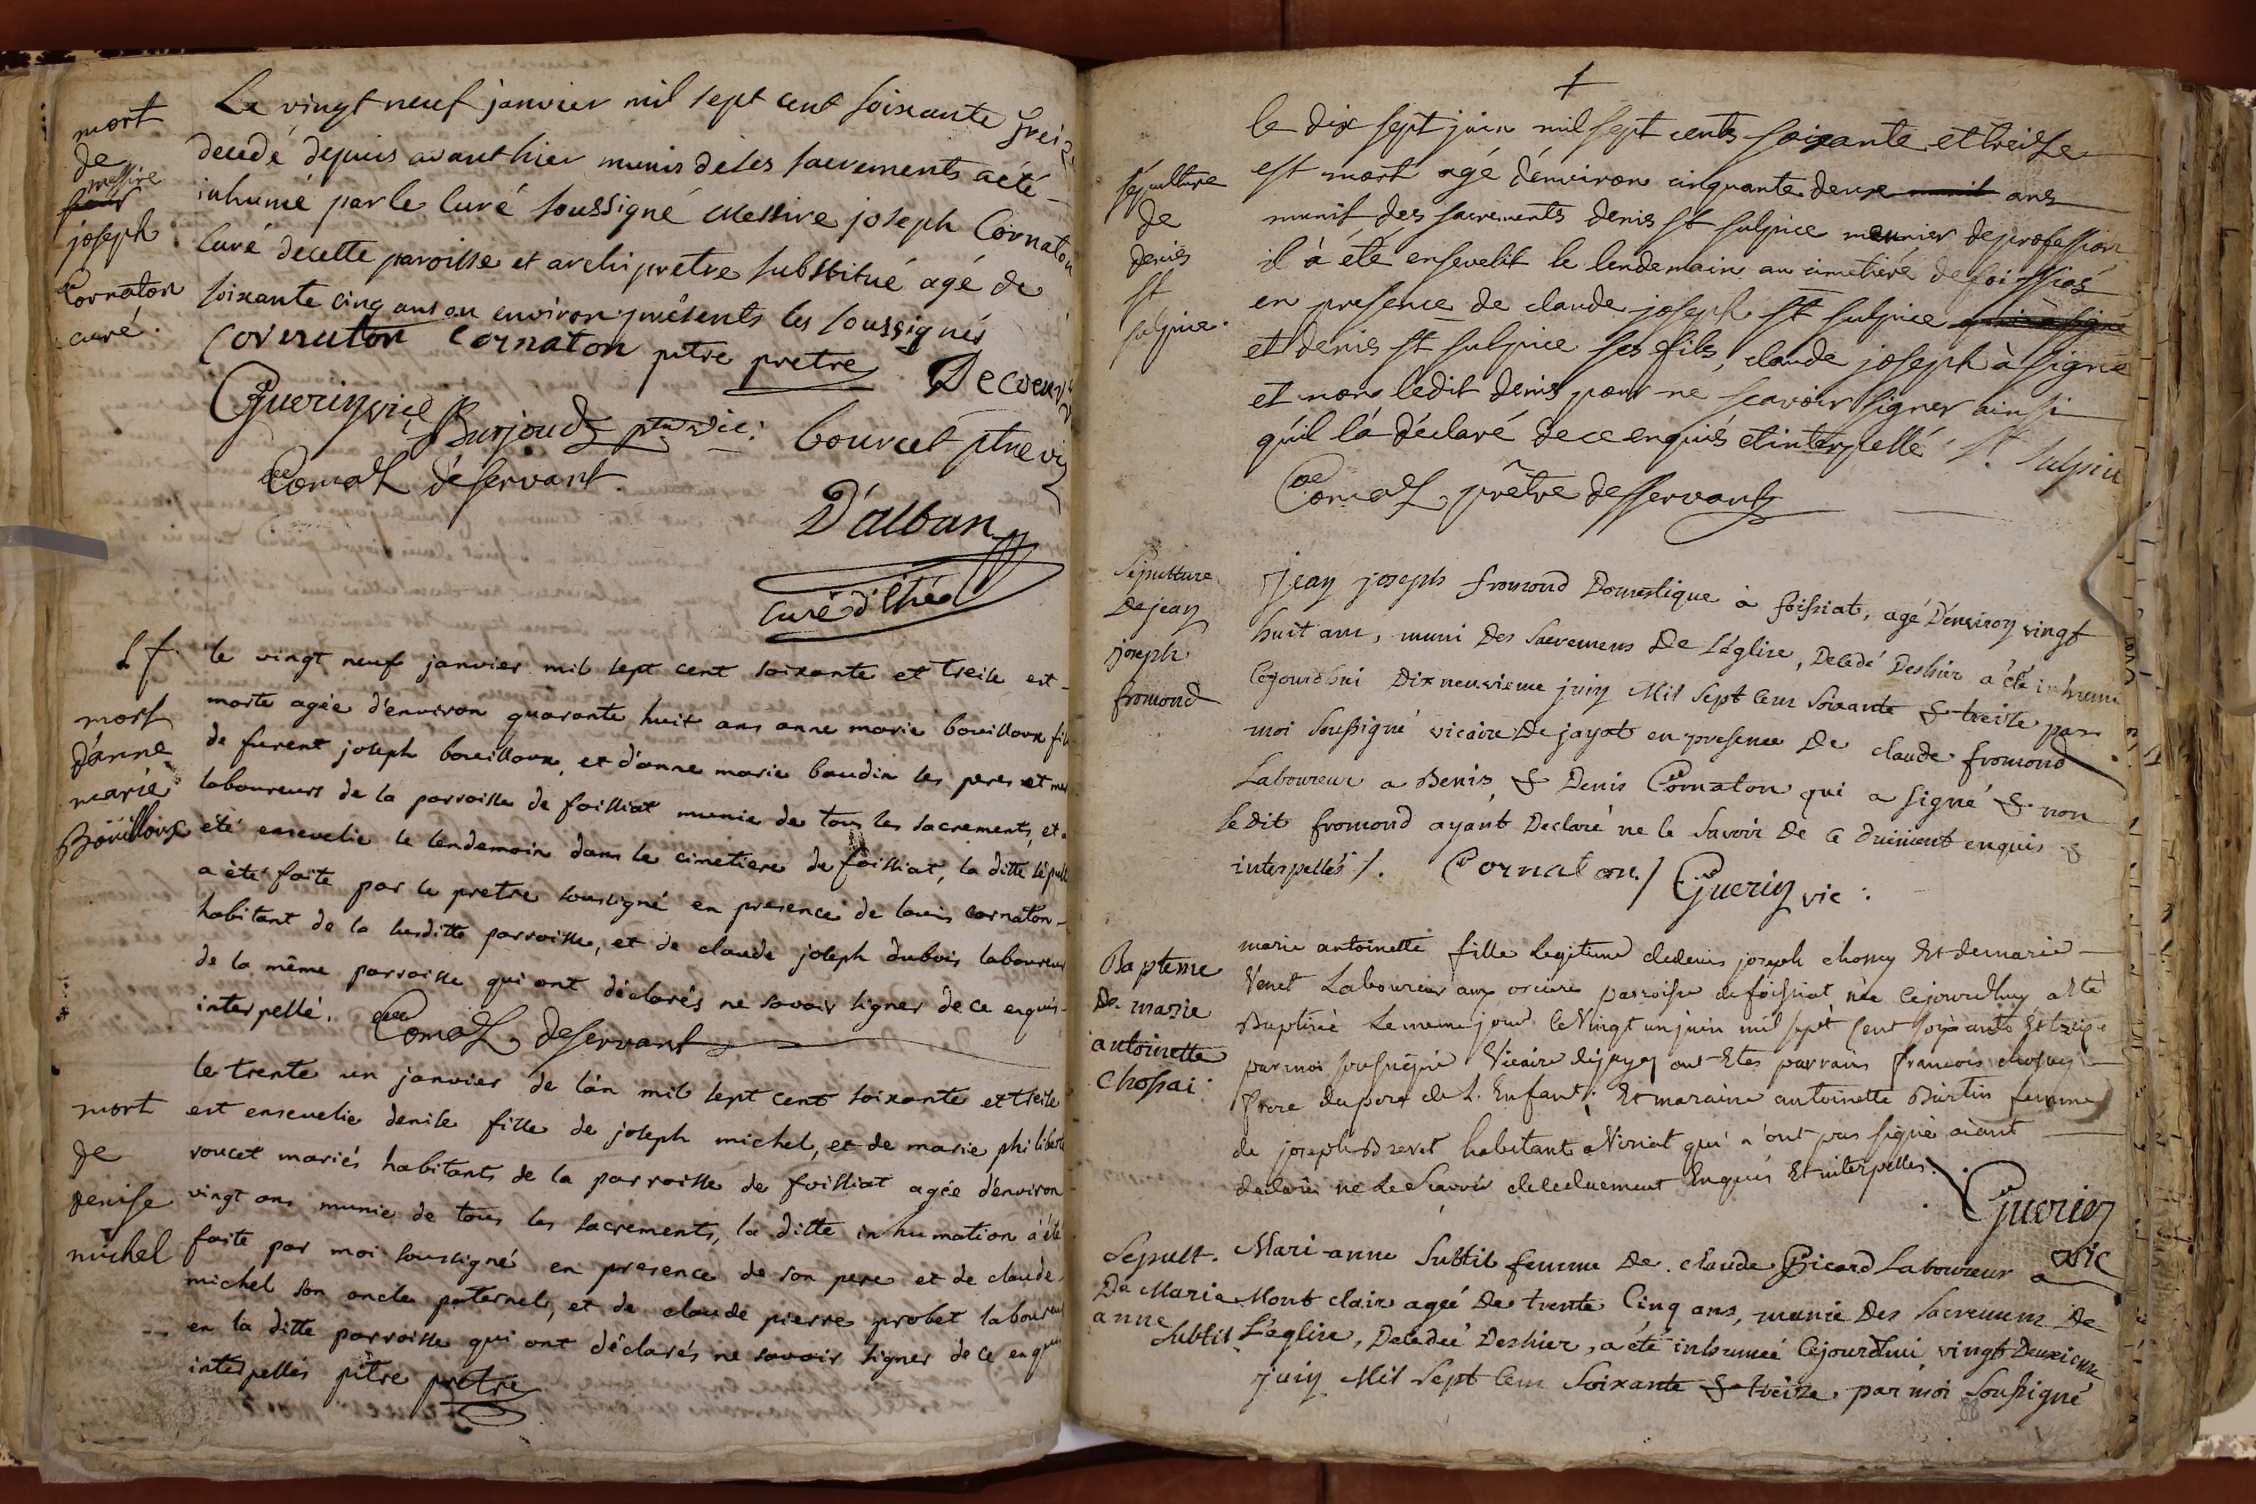 mort
de
messire
joseph
Cornaton
curé.
Le vingt neuf janvier mil sept cent soixante treize
decedé depuis avanthier munis de ses sacrements a été
inhumé par le Curé soussigné Messire joseph Cornaton
Curé de cette paroisse et archiprêtre substitué agé de
soixante cinq ans ou environ présents les soussignés
Cornaton Cornaton pitre pretre Decoeur
Guerin vic Burjoud ptre vic: bourcet ptre vic
Comas déservant
D'alban
Curé d'
mort
d'anne
marie
Boüilloux
le vingt neuf janvier mil sept cent soixante et treise est
morte agée d'environ quarante huit ans anne marie bouilloux fille
de furent joseph bouilloux, et d'anne marie baudin ses peres et mere
laboureurs de la parroisse de foissiat munie de tous les sacrements, et a
été ensevelie le lendemain dans le cimetiere de foissiat, la ditte sepult
a été faite par le pretre soussigné en presence de louis cornaton
habitant de la susditte parroisse, et de claude joseph dubois laboureur
de la même parroisse qui ont déclarés ne savoir signer de ce enquis
interpellé. Comas deservant
mort
de
denise
michel
le trente un janvier de l'an mil sept cent soixante et treise
est ensevelie denise fille de joseph michel, et de marie philiberte
roucet mariés habitants de la parroisse de foissiat agée d'environ
vingt ans munie de tous les sacrements, la ditte inhumation a été
faite par moi soussigné en presence de son pere et de claude
michel son oncle paternel, et de claude pierre probet laboureur
en la ditte parroisse qui ont déclarés ne savoir signer de ce enquis
interpellés pitre pretre
sépulture
de
denis
st
sulpice.
le dix sept juin mil sept cents soixante et treise
est mort agé d'environ cinquante deux ans
munit des sacrements denis st sulpice meunier de profession
il à été ensevelit le lendemain au cimetiere de foissias
en presence de claude joseph st sulpice
et denis st sulpice ses fils, claude joseph à signé
et non ledit denis pour ne scavoir signer ainsi
qu'il l'a déclaré de ce enquis et interpellé St Sulpice
Comas prêtre desservant
Sépulture
De jean
joseph
fromond
Jean joseph fromond Domestique à foissiat, agé D'environ vingt
huit ans, muni Des Sacremens De L'église, Decedé Deshier a été inhumé
Cejourdhui Dix neuvieme juin Mil Sept Cent Soixante & treize par
moi Soussigné vicaire De jayat en presence De claude fromond
Laboureur a Benis, & Denis Cornaton qui a signé & non
Ledit fromond ayant Declaré ne le Savoir De ce duement enquis &
interpellés /. Cornaton / Guerin vic:
Bapteme
De marie
antoinette
Chossai.
marie antoinette fille Legitime de denis joseph chossey Et de marie
Venet Laboureur aux parroisse de foissiat née cejourdhuy a été
Baptisée Le meme jour le Vingt un juin mil sept Cent soixante Et treize
par moi soussigné Vicaire de jayat ont Etés parrain francois chossey
frere du pere de L'Enfant; Et maraine antoinette Burtin femme
de joseph Brevet habitant a Viriat qui n'ont pas signé aiant
declarés ne Le Scavoir de ce duement Enquis Et interpelles.
Guerin
vic
Sepult.
De Marie
anne
Subtil
Mari-anne Subtil femme De claude Picard Laboureur a
Mont clair ageé De trente Cinq ans, munie Des Sacremens De
L'église, Decedeé Deshier, a été inhumeé Cejourdhui vingt Deuxieme
juin Mil Sept Cent Soixante & treize, par moi Soussigné